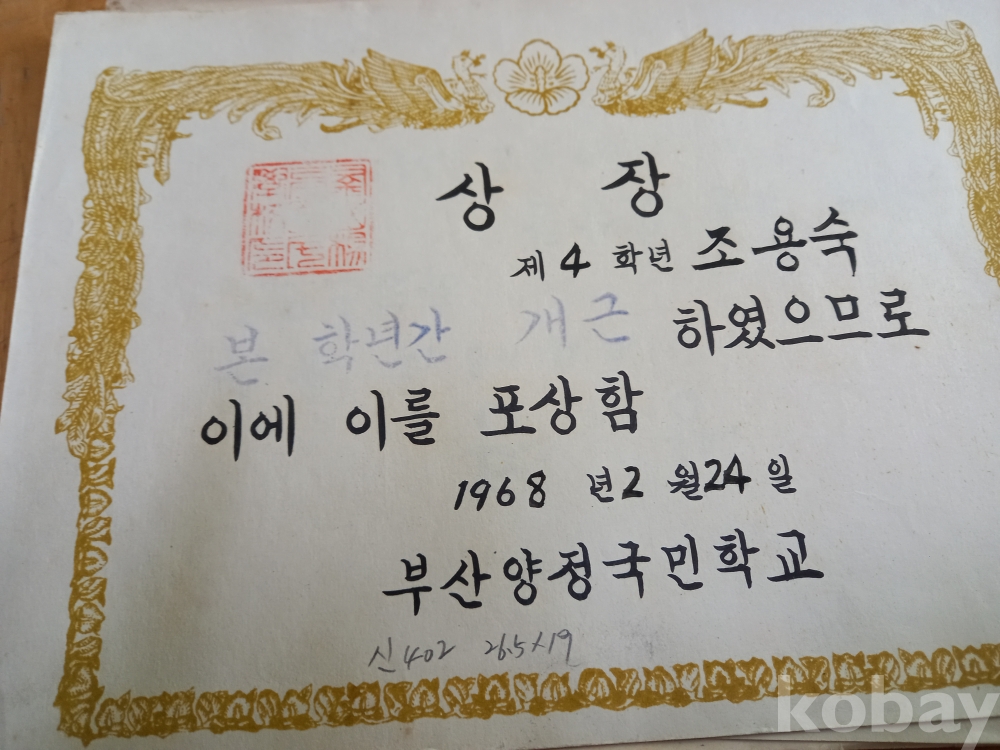 상 장
제 4 학년 조용숙
본 학년간 개근 하였으므로
이에 이를 포상함
1968 년 2 월 24 일
부산양정국민학교
신402 26.5×19
kobay